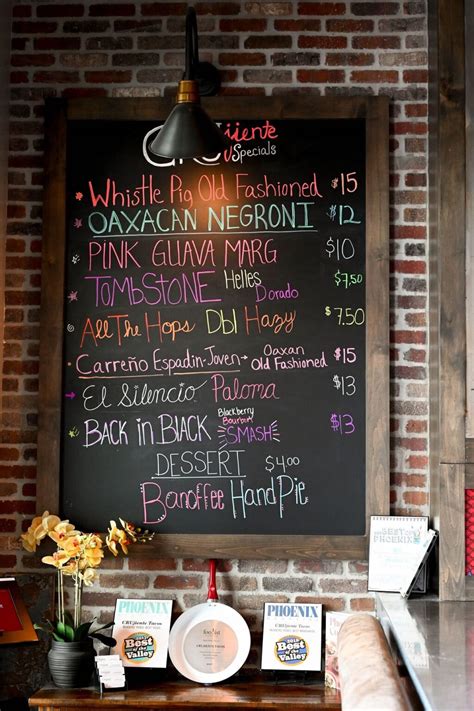 CRUjiente
Specials
Whistle Pig Old Fashioned $15
OAXACAN NEGRONI $12
PINK GUAVA MARG $10
TOMBSTONE Helles Dorado $7.50
All The Hops Dbl Hazy $7.50
Carreño Espadin-Joven→ Oaxan Old Fashioned $15
El Silencio Paloma $13
Back in Black Blackberry Bourbon SMASH $13
DESSERT $4.00
Banoffee Hand Pie
PHOENIX
CRUjiente Tacos
Best of the Valley
PHOENIX
CRUjiente Tacos
2018
Best of the Valley
BEST OF
PHOENIX